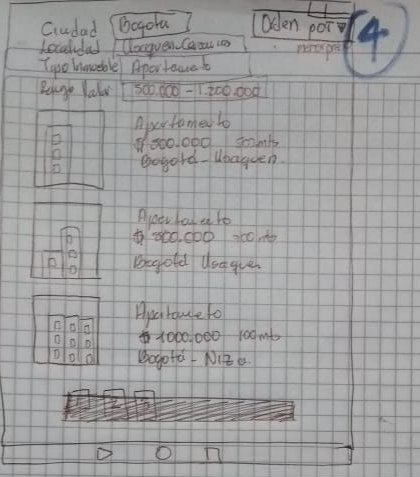 Ciudad Bogotá Orden por
Localidad Usaquen 4
Tipo Inmueble Apartamento
Rango Valor 500.000 - 1.200.000
Apartamento
$ 500.000
Bogotá - Usaquen.
Apartamento
$ 800.000 200 mts
Bogotá Usaquen
Apartameto
$ 1000.000 100 mts
Bogotá - Niza.
1 2 3